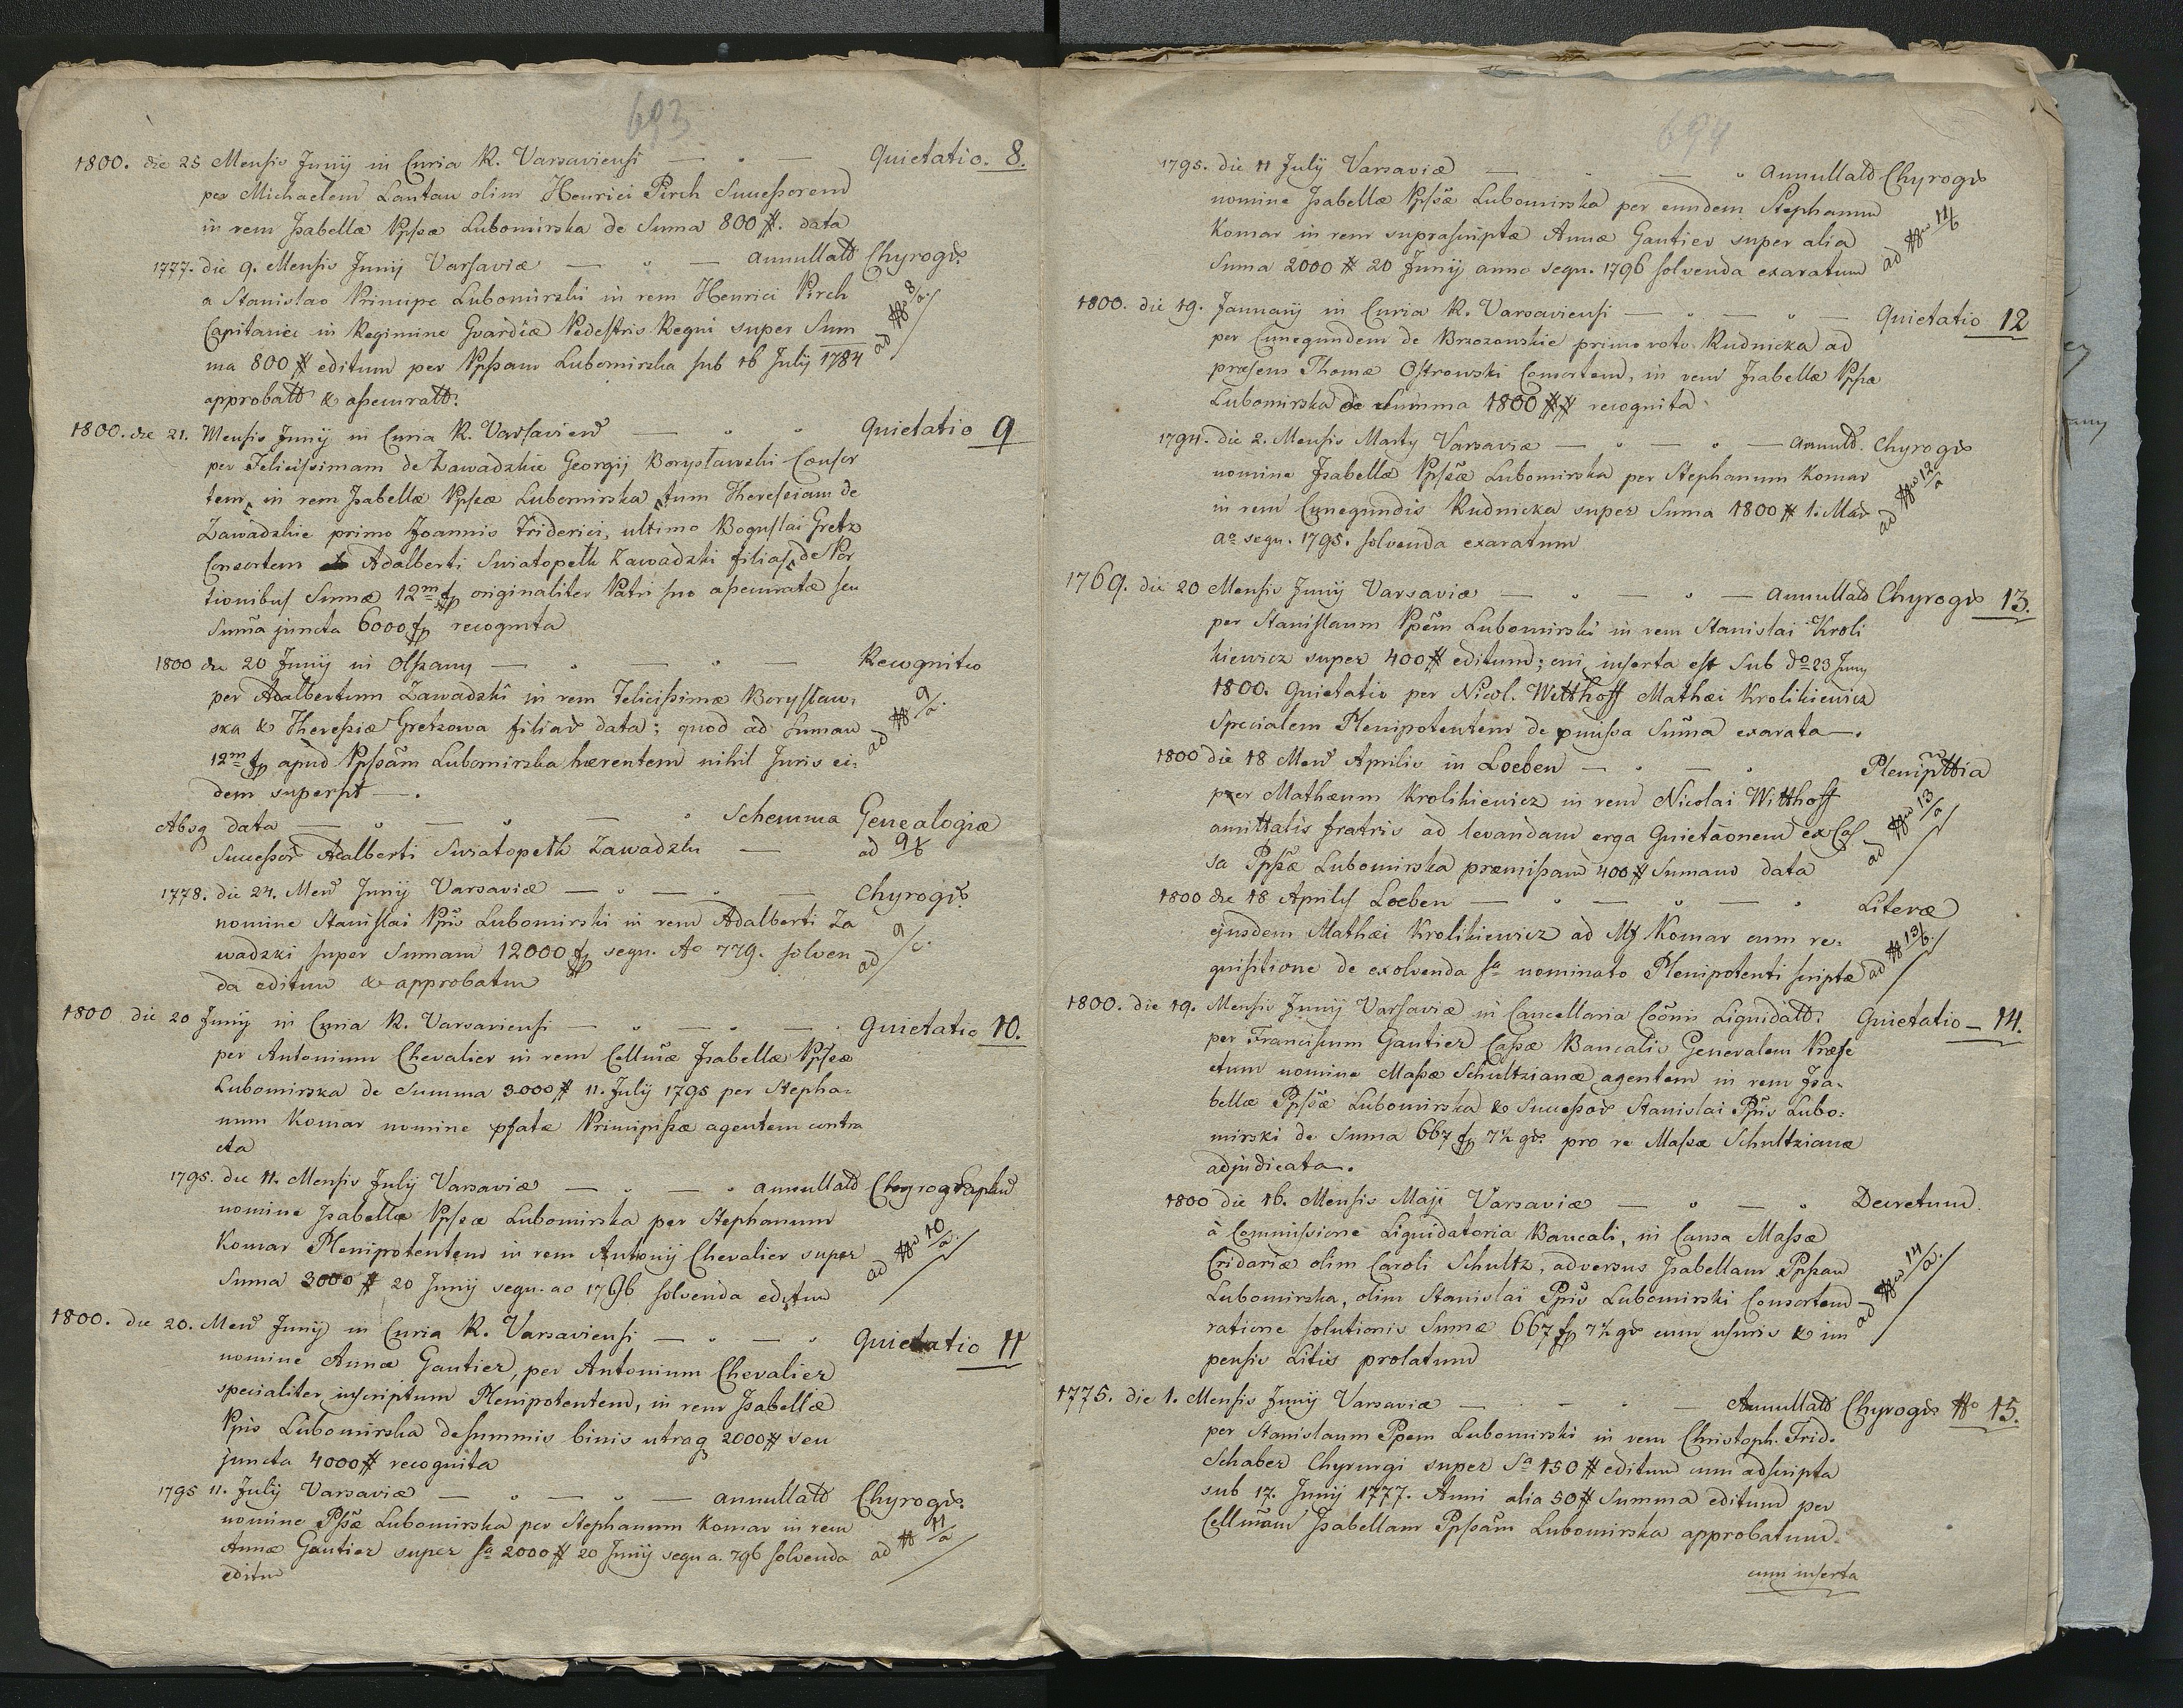 693
1800. die 25 Mensis Junij in Curia R. Varsaviensi — " — Quietatio. 8.
per Michaelem Lantau olim Henrici Pirch Sucessorem
in rem Isabellæ Ppssæ Lubomirska de Suma 800 #. data
1777. die 9. Mensis Junij Varsaviæ — " — annullatt Chyrogr.
a Stanislao Principe Lubomirski in rem Henrici Pirch
Capitanei in Regimine Gvardiæ Pedestris Regni super Sum
ad Nrw 8/a.
ma 800 # editum per Ppssam Lubomirska sub 16 July 1784
approbatt & assecuratt.
1800. die 21. Mensis Junij in Curia R. Varsavien — " " Quietatio 9
per Felicissimam de Zawadzkie Georgij Borysławski Consor
tem, in rem Isabellæ Ppssæ Lubomirska, tum Theressiam de
Zawadzkie primo Joannis Friderici, ultimo Boguslai Gretz
Consortem Adalberti Swiatopełk Zawadzki filias, de Por
tionibus Sumæ 12m fp originaliter Patri suo assecuratæ seu
Suma juncta 6000 fp recognita
1800 die 20 Junij in Olszany — " — " — Recognitio
per Adalbertum Zawadzki in rem Felicissimæ Borysław-
ska & Theressiæ Gretzowa filiar data; quod ad Sumam
ad N 9/a.
12m fp apud Ppssam Lubomirska hærentem nihil Juris ei-
dem supersit —.
Absq data — " — " — " Schemma Genealogiæ
Sucessor Adalberti Swiatopełk Zawadzki — ad 9/b
1778. die 24. Men Junij Varsaviæ — " — " — Chyrogr.
nomine Stanislai Ppis Lubomirski in rem Adalberti Za
wadzki super Sumam 12000 fp sequ. Ao 779. solven
ad 9/c.
da editum & approbatum
1800 die 20 Junij in Curia R. Varsaviensi — " — " — Quietatio 10.
per Antonium Chevalier in rem Cellmæ Isabellæ Ppssæ
Lubomirska de Summa 3000 # 11. July 1795 per Stepha-
num Komar nomine pfatæ Principissæ agentem contra
cta
1795. die 11. Mensis July Varsaviæ — " — " annullatt Chyrographu
nomine Isabellæ Ppssæ Lubomirska per Stephanum
Komar Plenipotentem in rem Antonij Chevalier super
ad Nrw 10/a.
Suma 3000 # 20 Junij sequ. ao 1796 solvenda editum
1800. die 20. Men Junij in Curia R. Varsaviensi — " — " Quietatio 11
nomine Annæ Gautier, per Antonium Chevalier
specialiter inscriptum Plenipotentem, in rem Isabellæ
Ppis Lubomirska de summis binis utraq 2000 # seu
juncta 4000 # recognita
1795 11. July Varsaviæ — " — " — annullatt Chyrogr.
nomine Pssæ Lubomirska per Stephanum Komar in rem
Annæ Gautier super sa 2000 # 20 Junij sequ a. 796 solvenda ad N 11/a
editum
694
1795. die 11 July Varsaviæ — " — " annullatt Chyrogr
nomine Isabellæ Ppssæ Lubomirska per eundem Stephanum
Komar in rem suprascriptæ Annæ Gautier super alia
ad Nrw 11/b
Suma 2000 # 20 Junij anno sequ. 1796 solvenda exaratum
1800. die 19. January in Curia R. Varsaviensi — " — " — Quietatio 12
per Cunegundem de Brzozowskie primo voto Rudnicka ad
præsens Thomæ Ostrowski Consortem, in rem Isabellæ Ppssæ
Lubomirska de Summa 1800 ## recognita
1794. die 2. Mensis Marty Varsaviæ — " — " — annult. Chyrogr
nomine Isabellæ Ppssæ Lubomirska per Stephanum Komar
in rem Cunegundis Rudnicka super Suma 1800 # 1. Mar
ad Nrw 12/a
ao sequ. 1795. solvenda exaratum
1769. die 20 Mensis Junij Varsaviæ — " — " — annullatt Chyrogr 13.
per Stanislaum Ppem Lubomirski in rem Stanislai Kroli
kiewicz super 400 # editum; cui inserta est sub do 23 Juny
1800. Quietatio per Nicol. Witthoff Mathæi Krolikiewicz
Specialem Plenipotentem de pmissa Suma exarata —.
1800 die 18 Men Aprilis in Loeben — " — " Plenipttia
per Mathæum Krolikiewicz in rem Nicolai Witthoff
amittalis fratris ad levandam erga Quietaonem ex Cas
ad Nrw 13/a
sa Ppssæ Lubomirska præmissam 400 # Sumam data
1800 die 18 Aprilis Loeben — " — " — " Literæ
ejusdem Mathæi Krolikiewicz ad Mf Komar cum re-
quisitione de exolvenda sa nominato Plenipotenti scriptæ ad N 13/b.
1800. die 19. Mensis Junij Varsaviæ in Cancellaria Coonis Liquidatt. Quietatio — 14.
per Franciscum Gautier Cassæ Bancalis Generalem Præfe
ctum nomine Massæ Schultzianæ agentem in rem Isa-
bellæ Ppssæ Lubomirska & Sucessor Stanislai Ppis Lubo-
mirski de Suma 667 fp 7½ gr. pro re Massæ Schultzianæ
adjudicata.
1800 die 16. Mensis Maji Varsaviæ " — " Decretum.
à Commissione Liquidatoria Bancali, in Causa Massæ
Cridariæ olim Caroli Schultz, adversus Isabellam Ppssam
Lubomirska, olim Stanislai Ppis Lubomirski Consortem
ad Nrw 14/a.
ratione solutionis Sumæ 667 fp 7½ gr cum usuris & im
pensis Litis prolatum
1775. die 1. Mensis Junij Varsaviæ — " — " — Annullatt Chyrogr. No 15.
per Stanislaum Ppem Lubomirski in rem Christoph. Frid.
Schaber Chyrurgi super Sa 150 # editum cum adscripta
sub 17. Junij 1777. Anni alia 50 # Summa editum per
Cellmam Isabellam Ppssam Lubomirska approbatum.
cum inserta